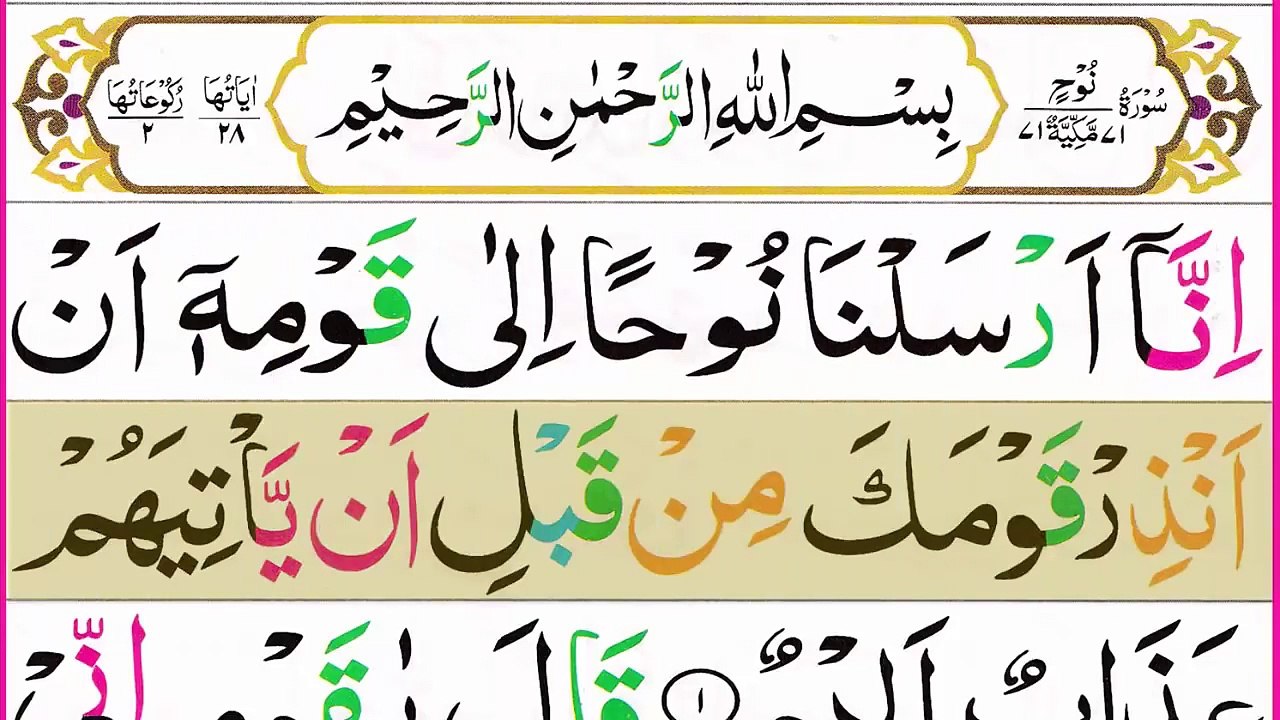 سُوْرَةُ نُوْحٍ
٧١ مَّكِّيَّةٌ ٧١
بِسْمِ اللّٰهِ الرَّحْمٰنِ الرَّحِيْمِ
اٰيَاتُهَا ٢٨
رُكُوْعَاتُهَا ٢
اِنَّاۤ اَرْسَلْنَا نُوْحًا اِلٰى قَوْمِهٖۤ اَنْ
اَنْذِرْ قَوْمَكَ مِنْ قَبْلِ اَنْ يَّاْتِيَهُمْ
عَذَابٌ اَلِيْمٌ ١ قَالَ يٰقَوْمِ اِنِّيْ